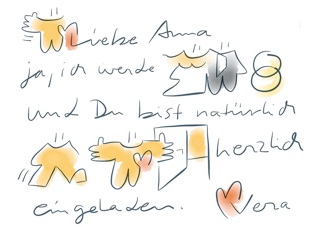 Liebe Anna
ja, ich werde 8
und Du bist natürlich
herzlich
eingeladen. Vera